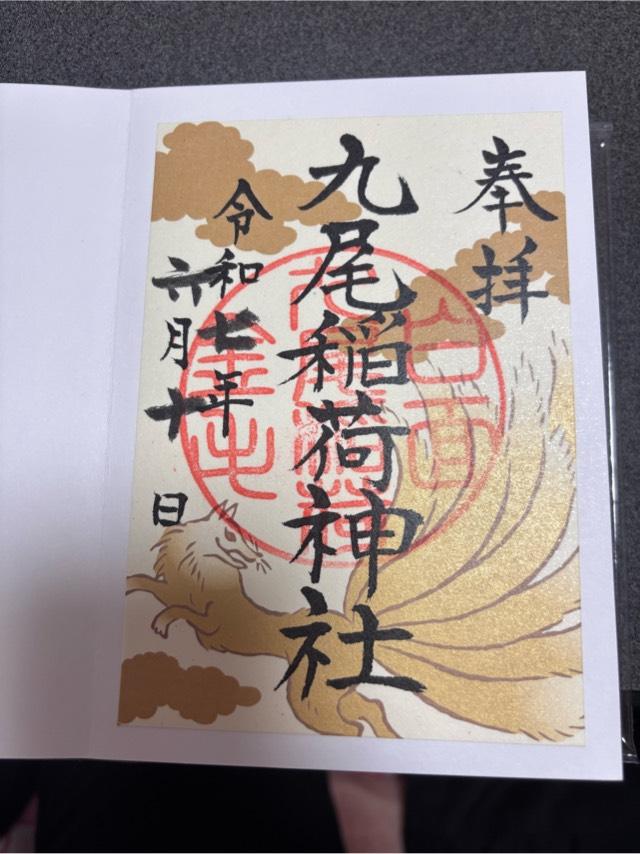 奉拝
九尾稲荷神社
令和七年
六月十日